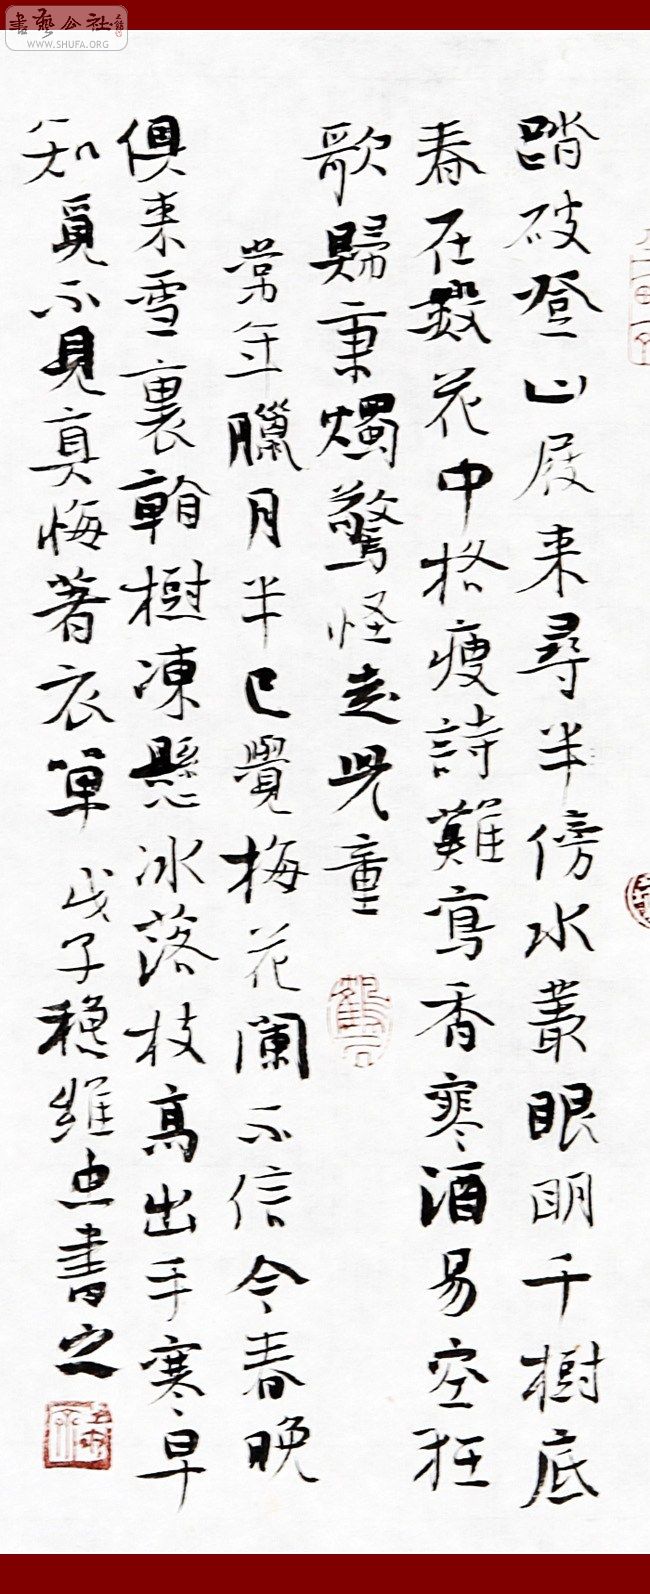 踏破登山屐来尋半傍水叢眼明千樹底
春在数花中格瘦詩難寫香寒酒易空狂
歌歸秉燭驚怪走児童
常年臘月半已覺梅花闌不信今春晚
俱来雪裏翰樹凍懸冰落枝高出手寒早
知覓不見真悔著衣單 戊子穆維忠書之
書藝公社
WWW.SHUFA.ORG